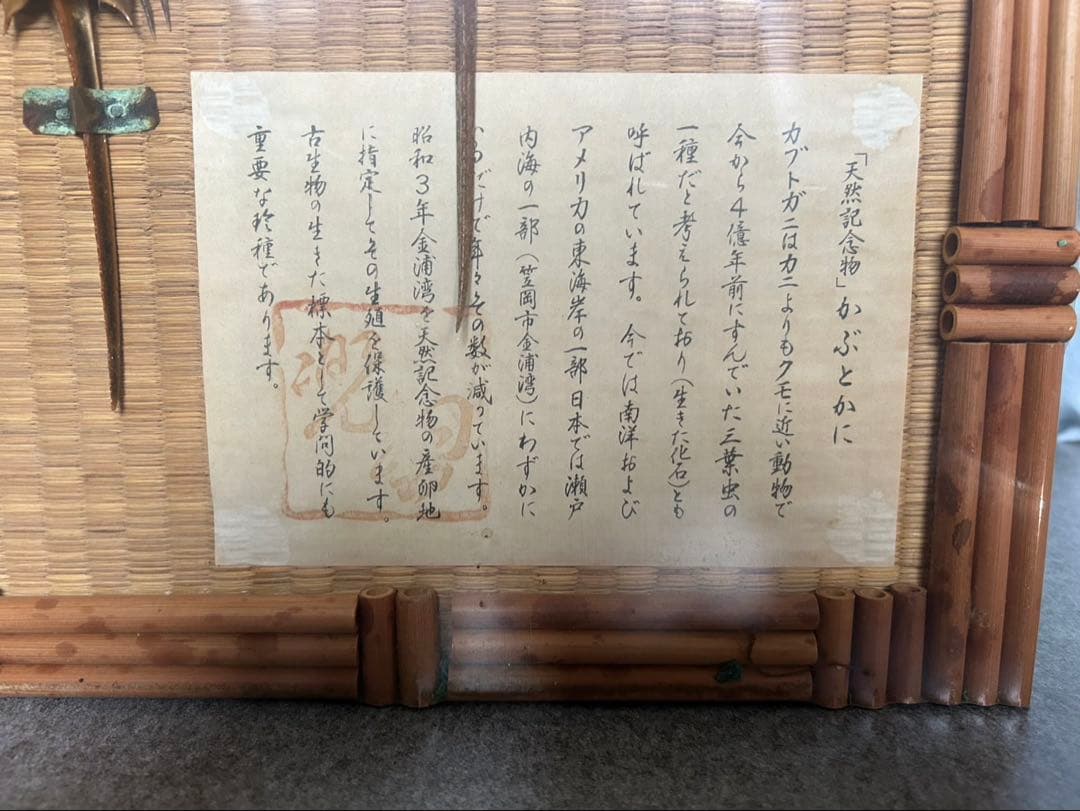 「天然記念物」かぶとかに
カブトガニはカニよりもクモに近い動物で
今から4億年前にすんでいた三葉虫の
一種だと考えられており(生きた化石)とも
呼ばれています。今では南洋および
アメリカの東海岸の一部日本では瀬戸
内海の一部(笠岡市金浦湾)にわずかに
だけで年々その数が減っています。
昭和3年金浦湾を天然記念物の産卵地
に指定してその生殖を保護しています。
古生物の生きた標本として学問的にも
重要な珍種であります。